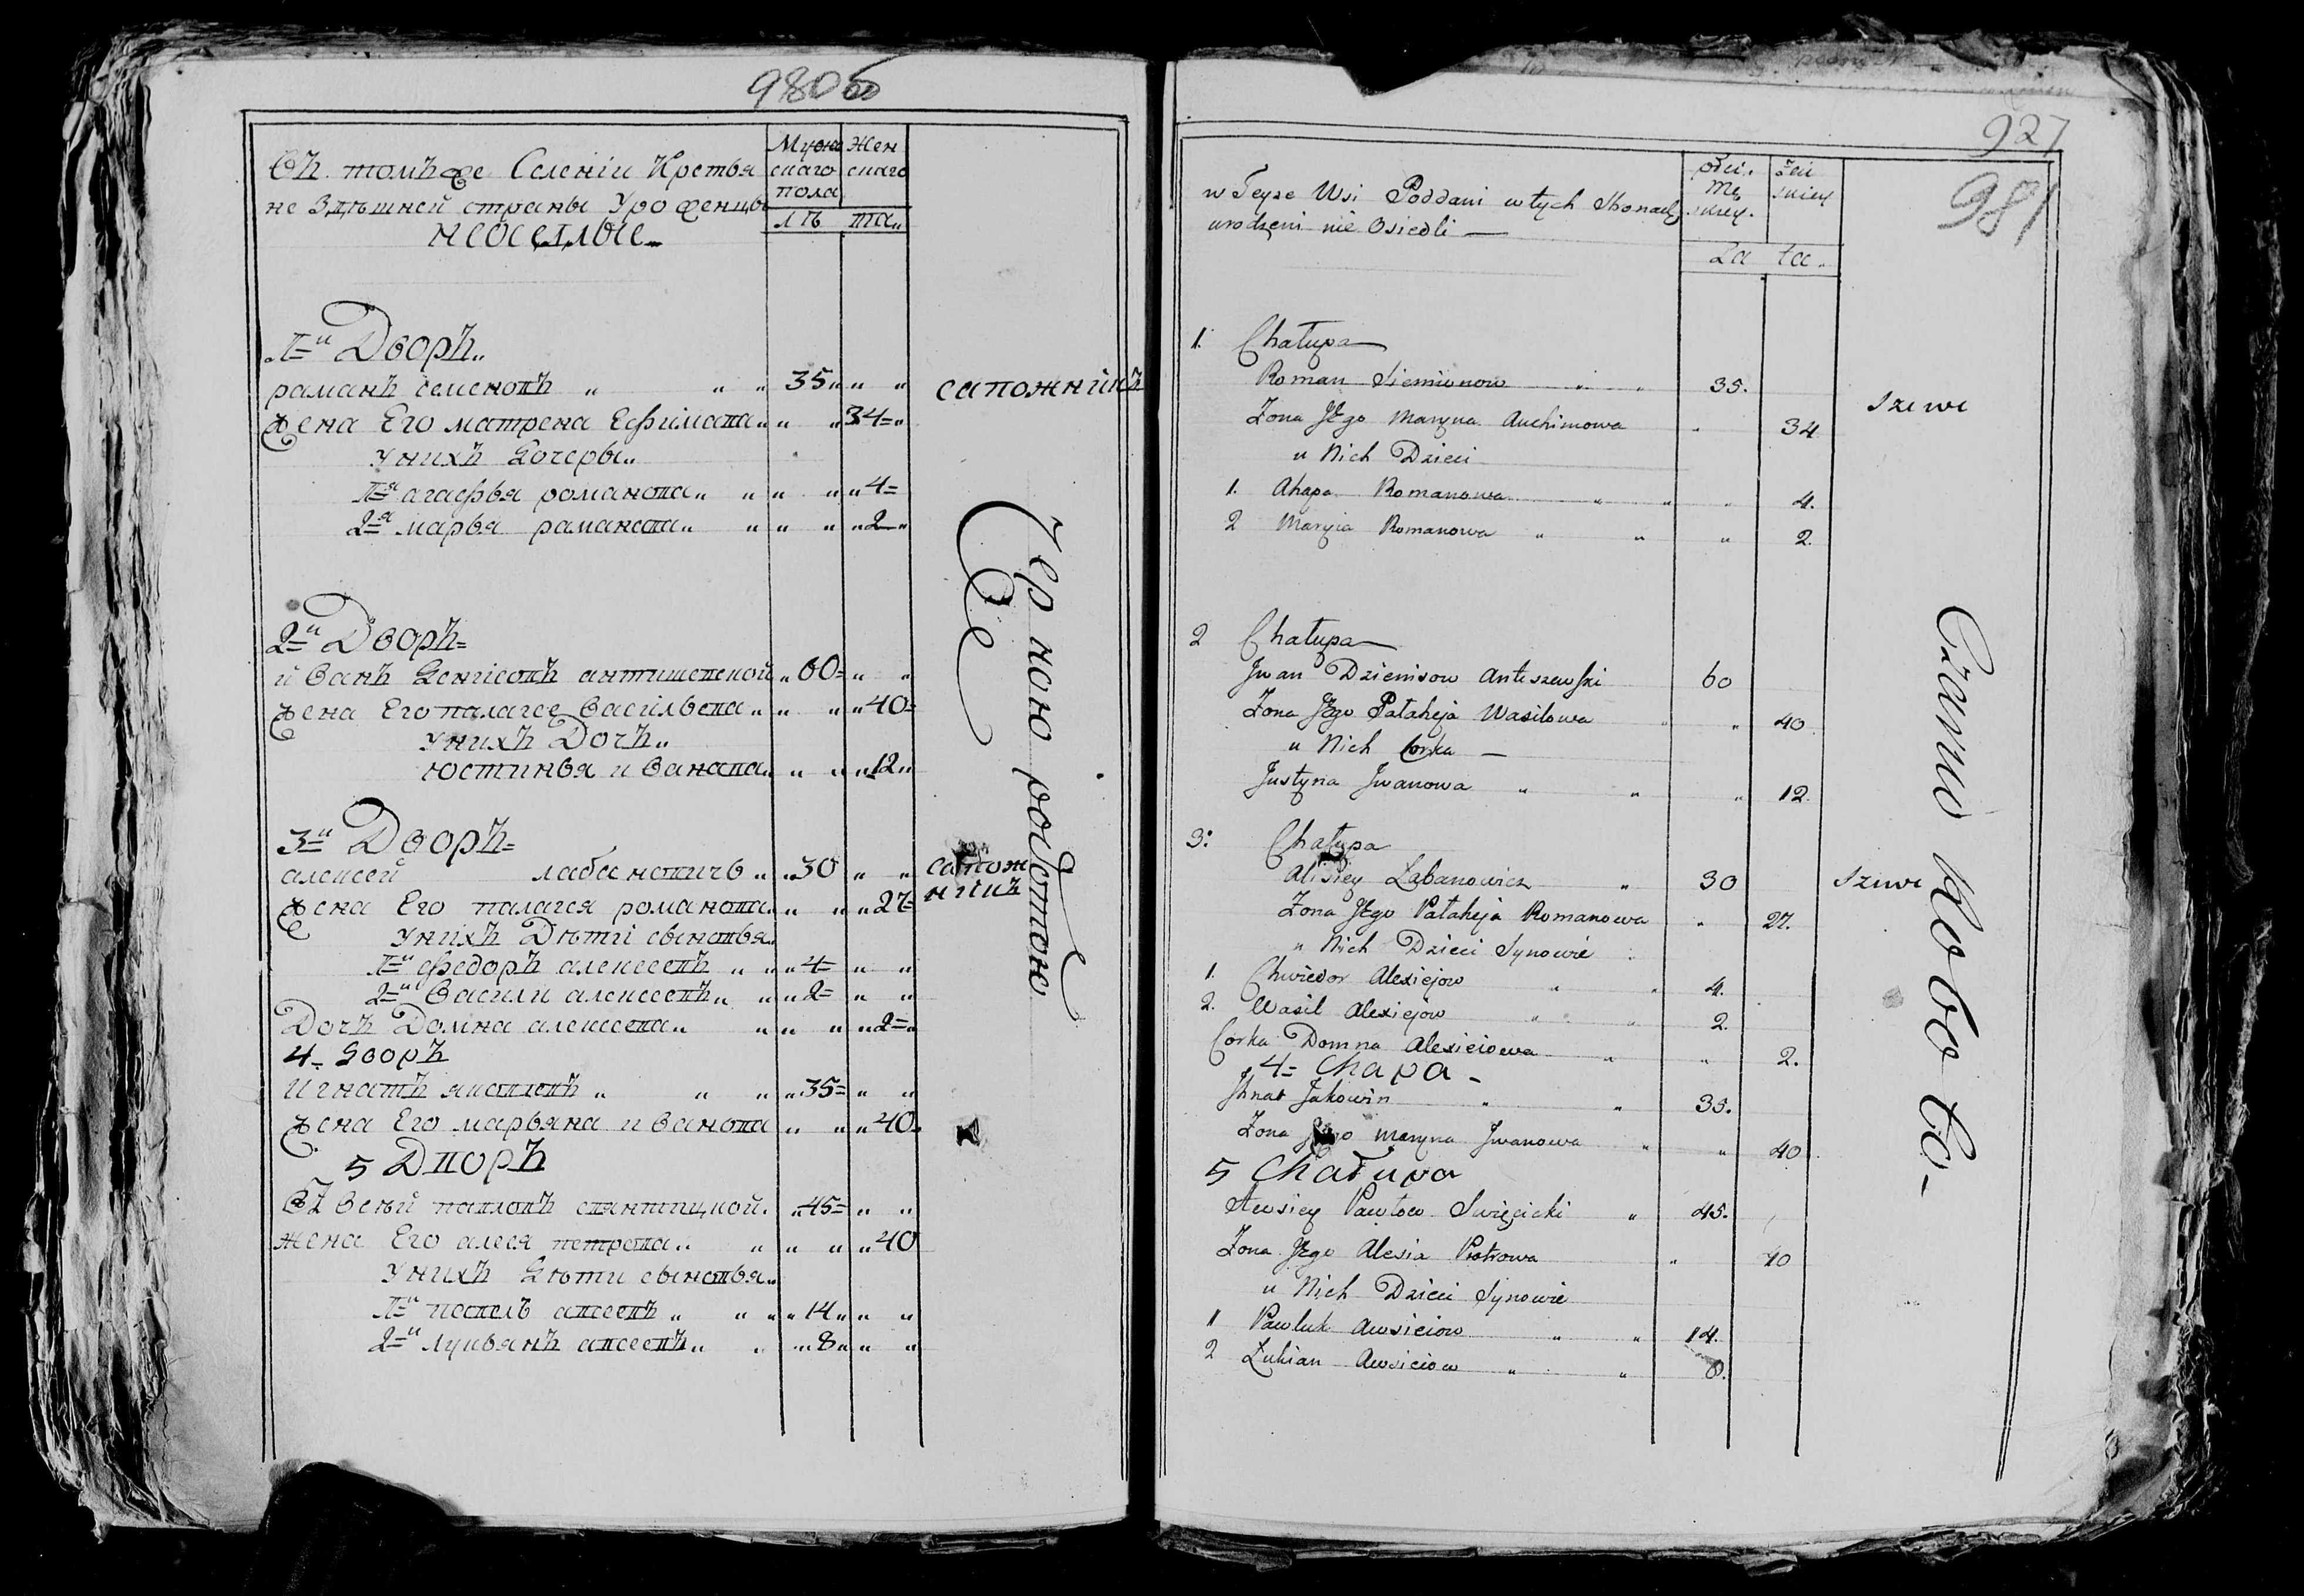 980об
Въ томъже Селеніи Крестья
не Здѣшней страны Уроженцы
неоседлые
Мужескаго пола
Женскаго
лѣ та
1й Дворъ
раманъ семеновъ 35 сапожникъ
жена Его матрена Ефимова 34
У нихъ Дочеры
1я агафья романова 4
2я марья раманова 2
2й Дворъ
иванъ Денисовъ антишевской 60
жена Его палагея васильева 40
У нихъ Дочъ
юстинья иванава 12
3й Дворъ
алексей лабановичъ 30 сапожникъ
жена Его палагея романова 27
У нихъ Дѣти сыновья
1й федоръ алексеевъ 4
2й Василий алексеевъ 2
Дочъ Домна алексева 2
4 Дворъ
Игнатъ яковлевъ 35
жена Его марьяна иванова 40
5 Дворъ
Евсѣй павловъ свянтицкой 45
жена Его алеся петрова 40
У нихъ Дѣти сыновья
1й павелъ авсеевъ 14
2й Лукьянъ авсеевъ 8
Черною работою
927
981
w Teyze Wsi Poddani w tych Stronach
urodzeni nie Osiedli
płci męskiey
żeńskiey
La ta
1. Chałupa
Roman Siemionow 35. Szewc
Zona Jego Maryna Auchimowa 34
u Nich Dzieci
1. Ahapa Romanowa 4.
2 Maryia Romanowa 2.
2 Chałupa
Jwan Dzienisow Antuszewski 60
Zona Jego Pałaheja Wasilowa 40
u Nich Corka
Justyna Jwanowa 12.
3: Chałupa
Alisiey Labanowicz 30 Szewc
Zona Jego Pałaheja Romanowa 27.
u Nich Dzieci Synowie
1. Chwiedor Alexiejow 4.
2. Wasil Alexiejow 2.
Corka Domna Alexieiowa 2.
4= Chapa
Jhnat Jakowin 35.
Zona Jego Maryna Jwanowa 40
5 Chałupa
Awsiey Pawłow Swięcicki 45.
Zona Jego Alesia Piotrowa 40
u Nich Dzieci Synowie
1 Pawluk Awsieiow 14.
2 Łukian Awsieiow 8.
Czarno Robo to